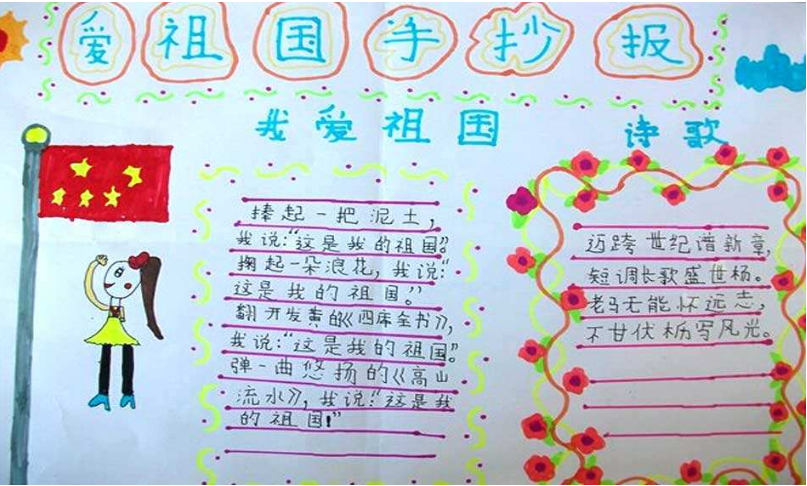 爱祖国手抄报
我爱祖国
捧起一把泥土，
我说：“这是我的祖国。”
掬起一朵浪花，我说：“
这是我的祖国。”
翻开发黄的《四库全书》，
我说：“这是我的祖国。”
弹一曲悠扬的《高山
流水》，我说：“这是我
的祖国！”
诗歌
迈跨世纪谱新章，
短调长歌盛世杨。
老马无能怀远志，
不甘伏枥写风光。